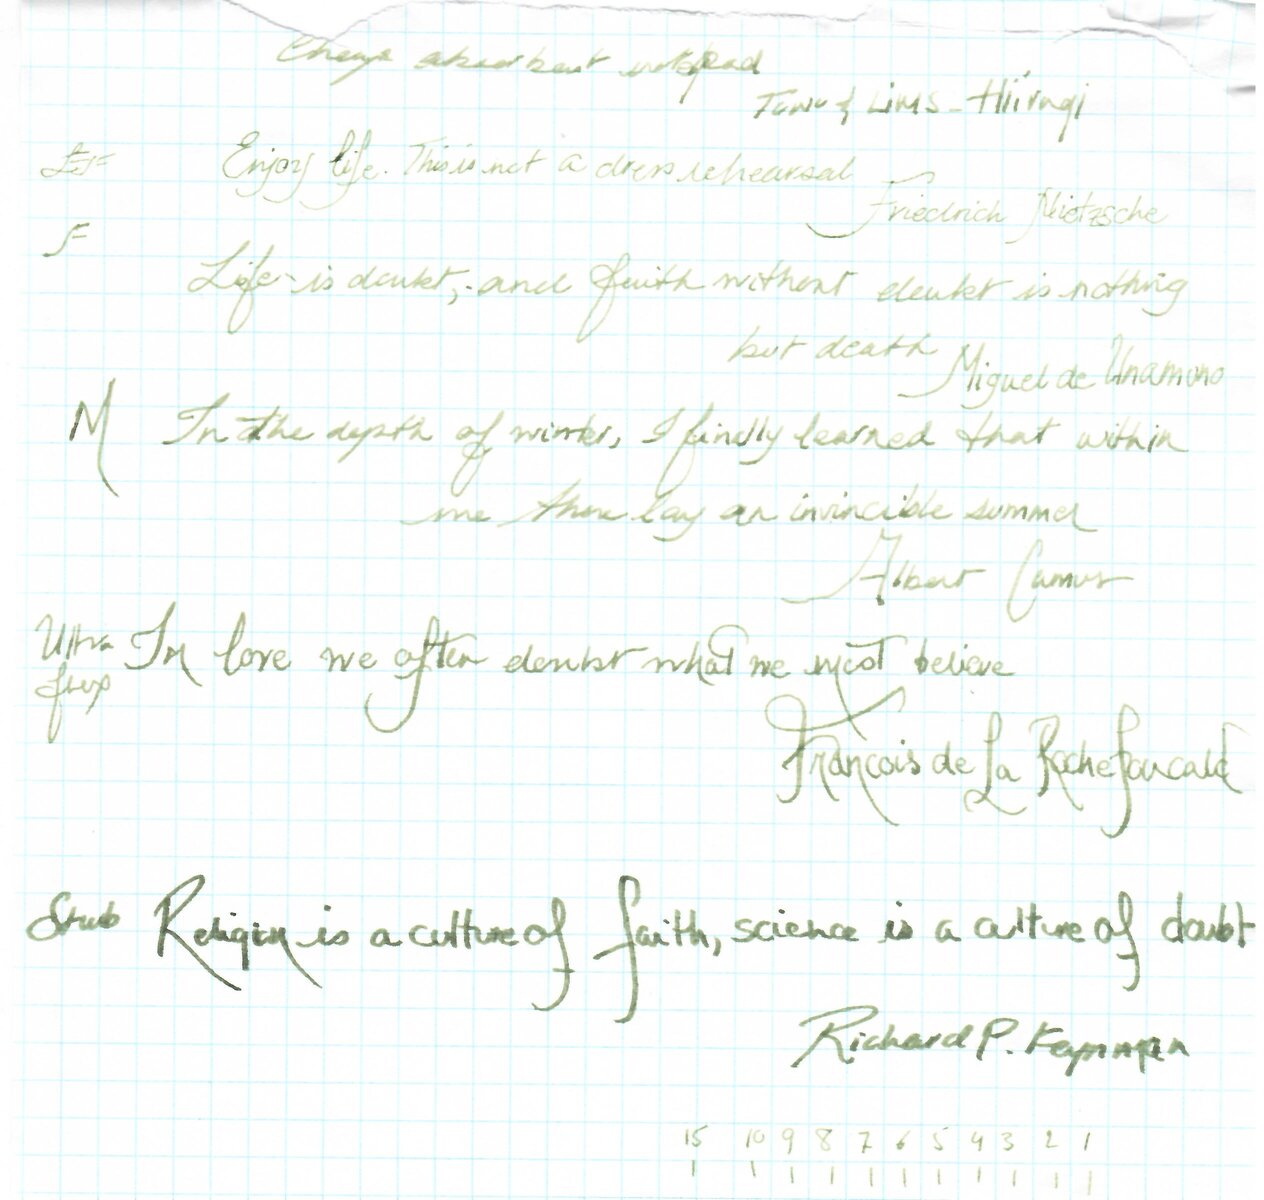 Cheap absorbent notepad
Tono & Lims - Hiiragi
EF Enjoy life. This is not a dress rehearsal
Friedrich Nietzsche
F
Life is doubt, and faith without doubt is nothing
but death
Miguel de Unamuno
M In the depth of winter, I finally learned that within
me there lay an invincible summer
Albert Camus
Ultra In love we often doubt what we most believe
flex
François de La Rochefoucald
Stub Religion is a culture of faith, science is a culture of doubt
Richard P. Feynman
15 10 9 8 7 6 5 4 3 2 1